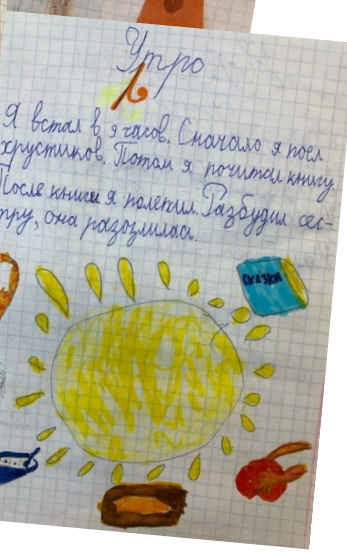 Утро
Я встал в 9 часов. Сначало я поел
хрустиков. Потом я почитал книгу.
После книги я полепил. Разбудил сес-
тру, она разозлилась.
СКАЗКИ